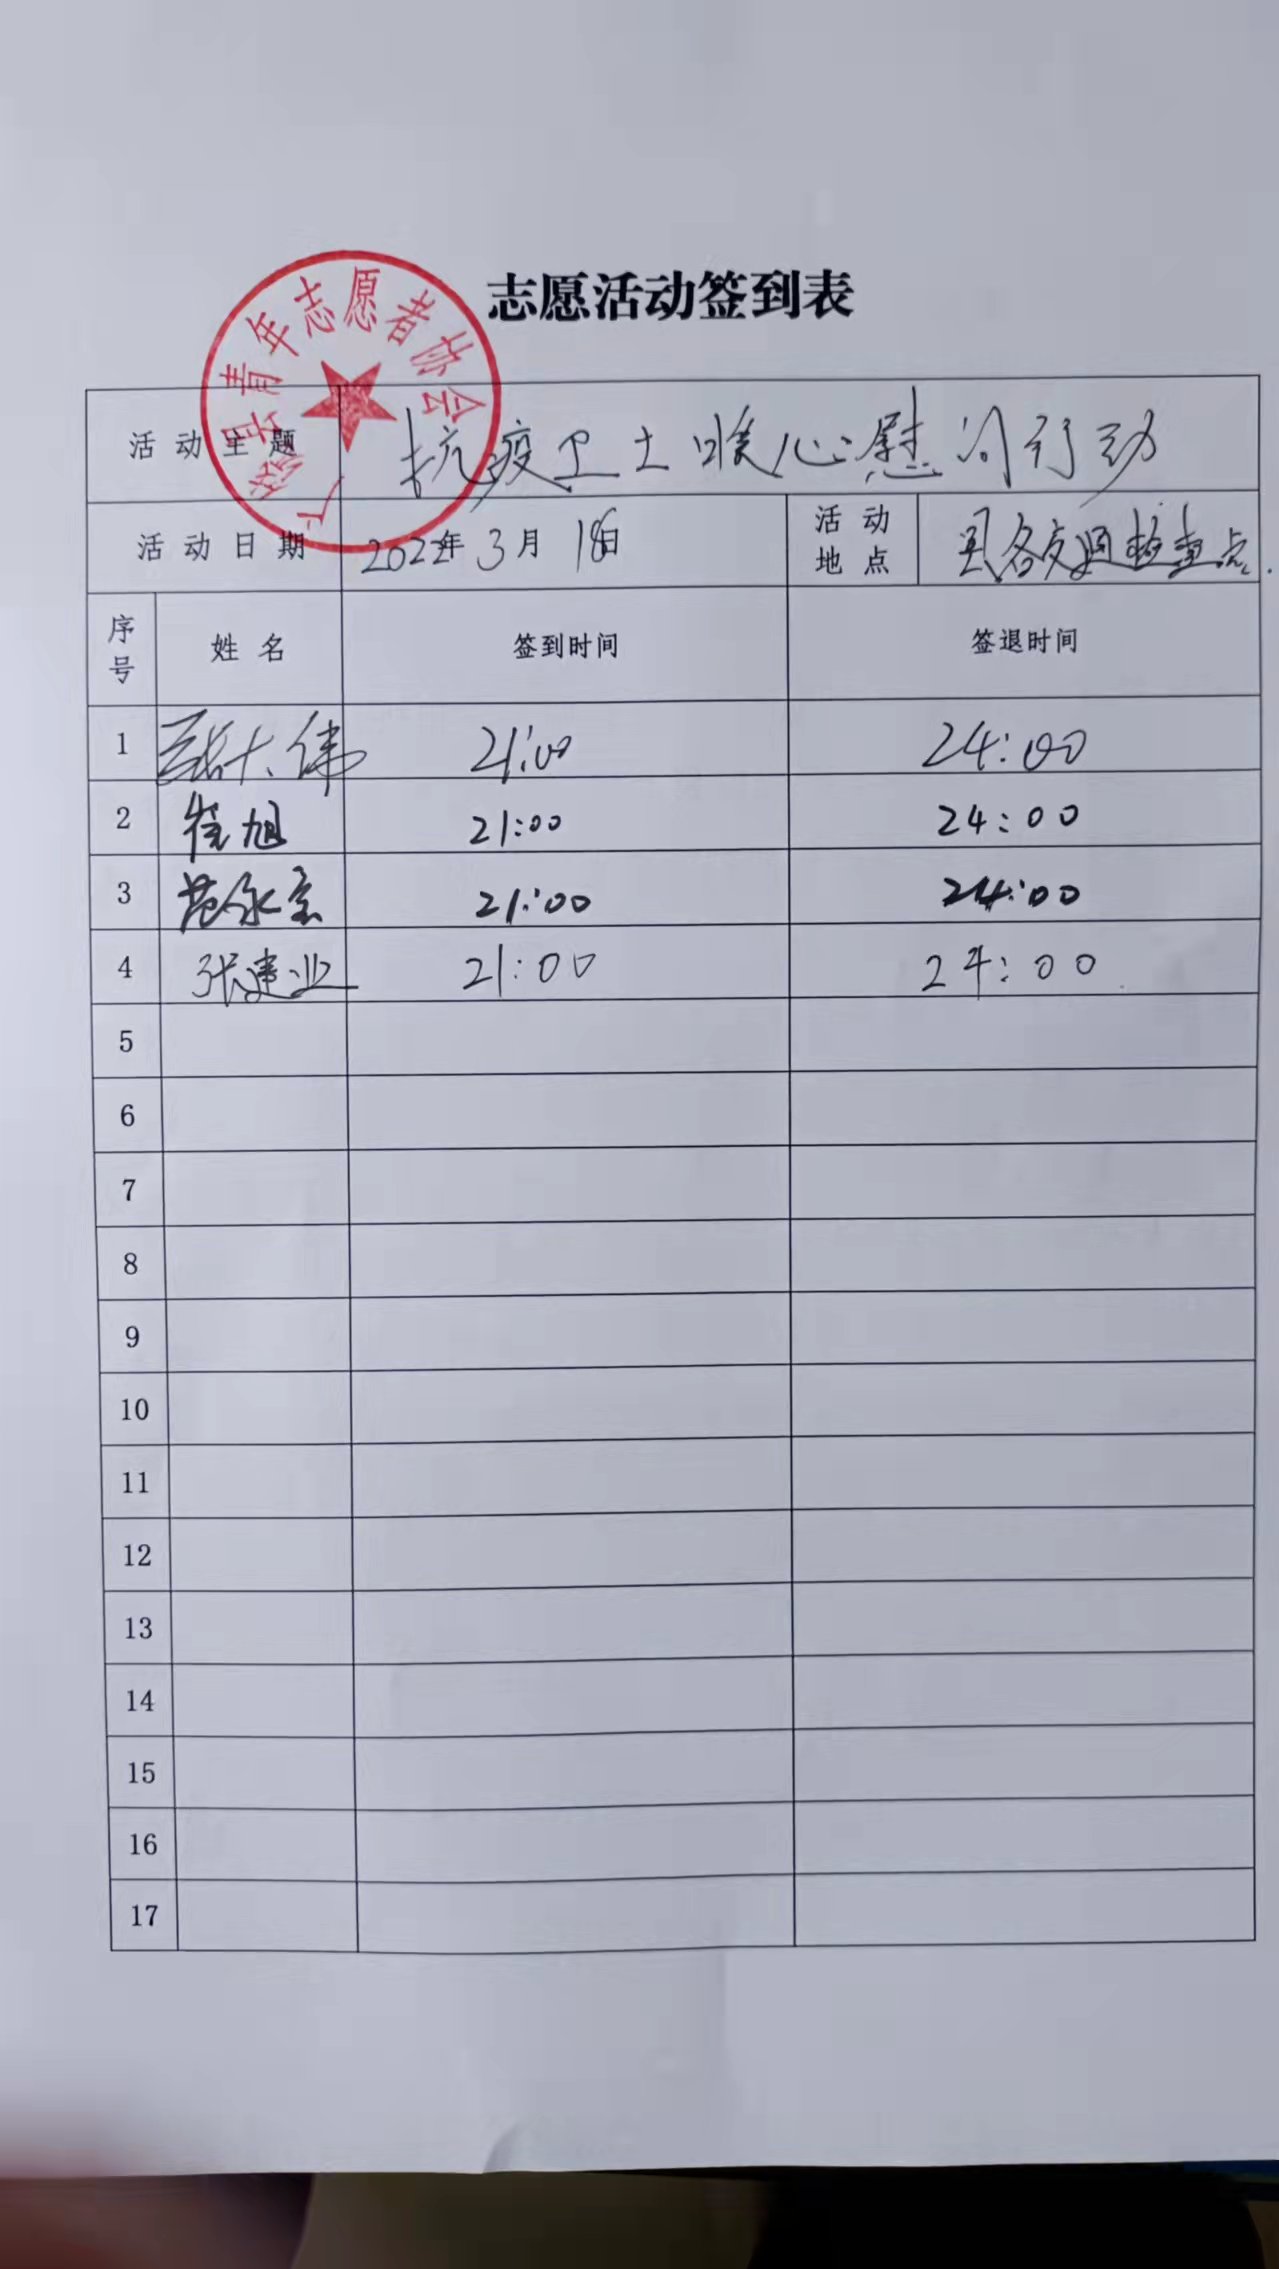 志愿活动签到表
县青年志愿者协会
活动主题 抗疫卫士暖心慰问行动
活动日期 2022年3月18日 活动地点 县各交通检查点.
序号 姓名 签到时间 签退时间
1 大伟 21:00 24:00
2 崔旭 21:00 24:00
3 范永 21:00 24:00
4 张建业 21:00 24:00
5
6
7
8
9
10
11
12
13
14
15
16
17